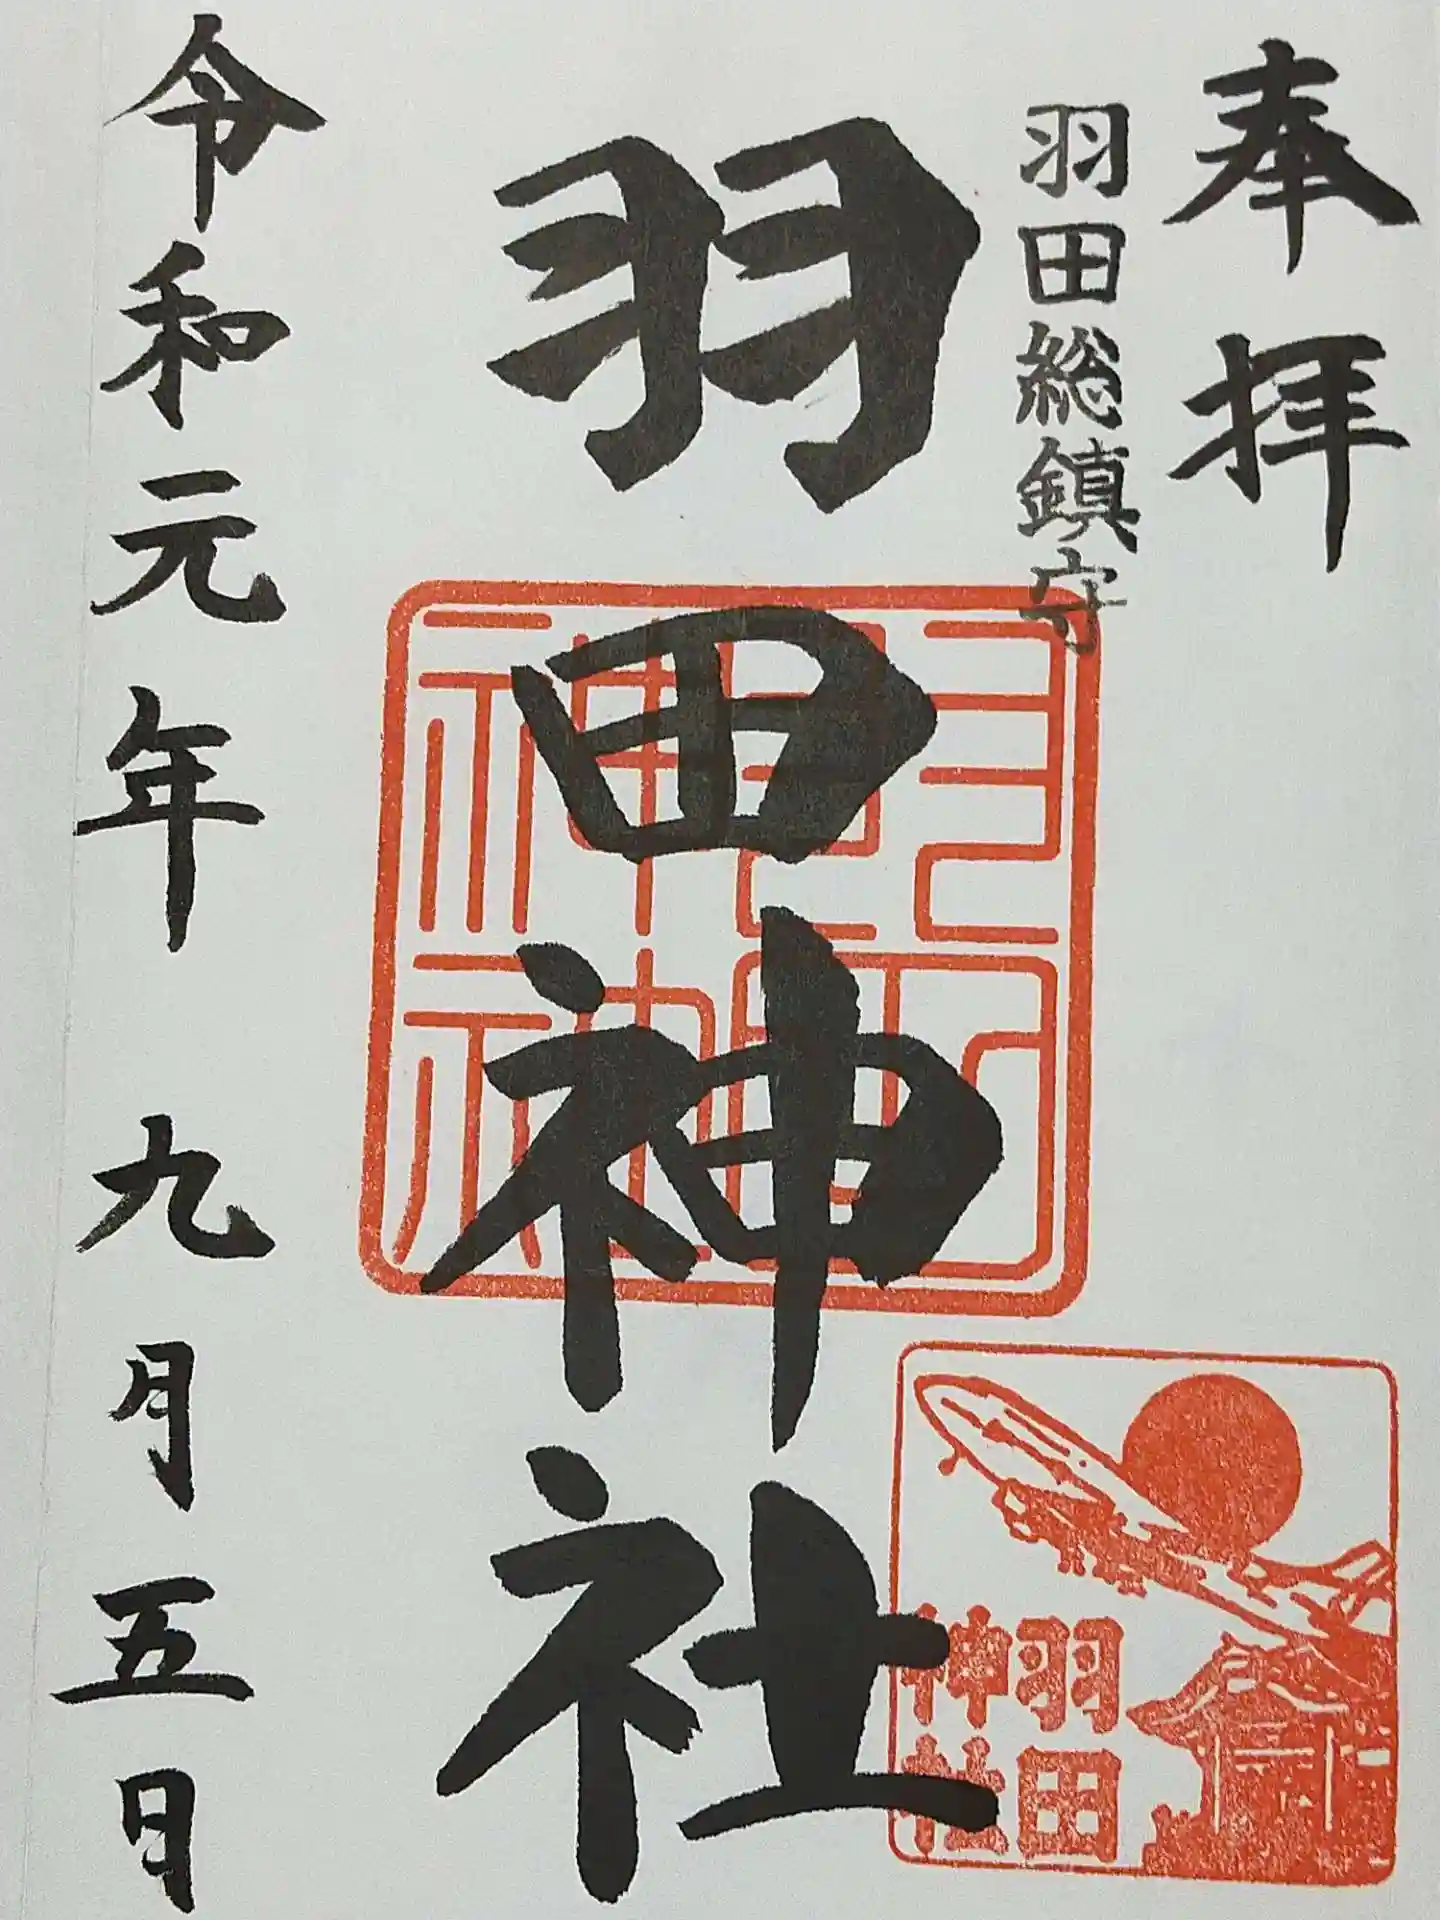 奉拝
羽田総鎮守
羽田神社
令和元年 九月五日
羽田
神社